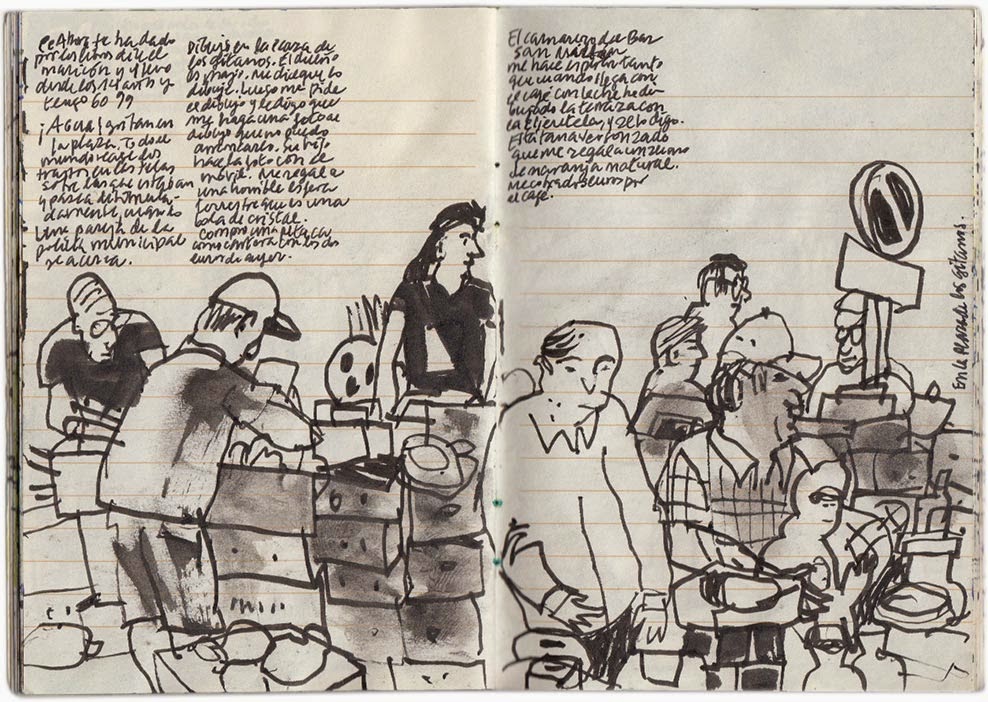 Ahora te ha dado
por los dice el
maricón y yo llevo
desde los 14 años y
tengo 60
¡Agua! gritan en
la plaza. Todo el
mundo recoge sus
trastos en las telas
sobre las que estaban
y pasea disimula-
damente, cuando
una pareja de la
policía municipal
se acerca.
Dibujo en la plaza de
los gitanos. El dueño
es majo. Me dice que lo
dibuje. Luego me pide
el dibujo y le digo que
me haga una foto al
dibujo que no puedo
arrancarlo. Su hijo
hace la foto con el
móvil. Me regala
una horrible esfera
terrestre que es una
bola de cristal.
Compro una petaca
como con los dos
euros de ayer.
El camarero del Bar
San Millán
me hace esperar tanto
que cuando llega con
el café con leche he di-
bujado la terraza con
la y se lo digo.
Está tan avergonzado
que me regala un zumo
de naranja natural.
Me cobra dos euros por
el café.
En la Plaza de los gitanos.